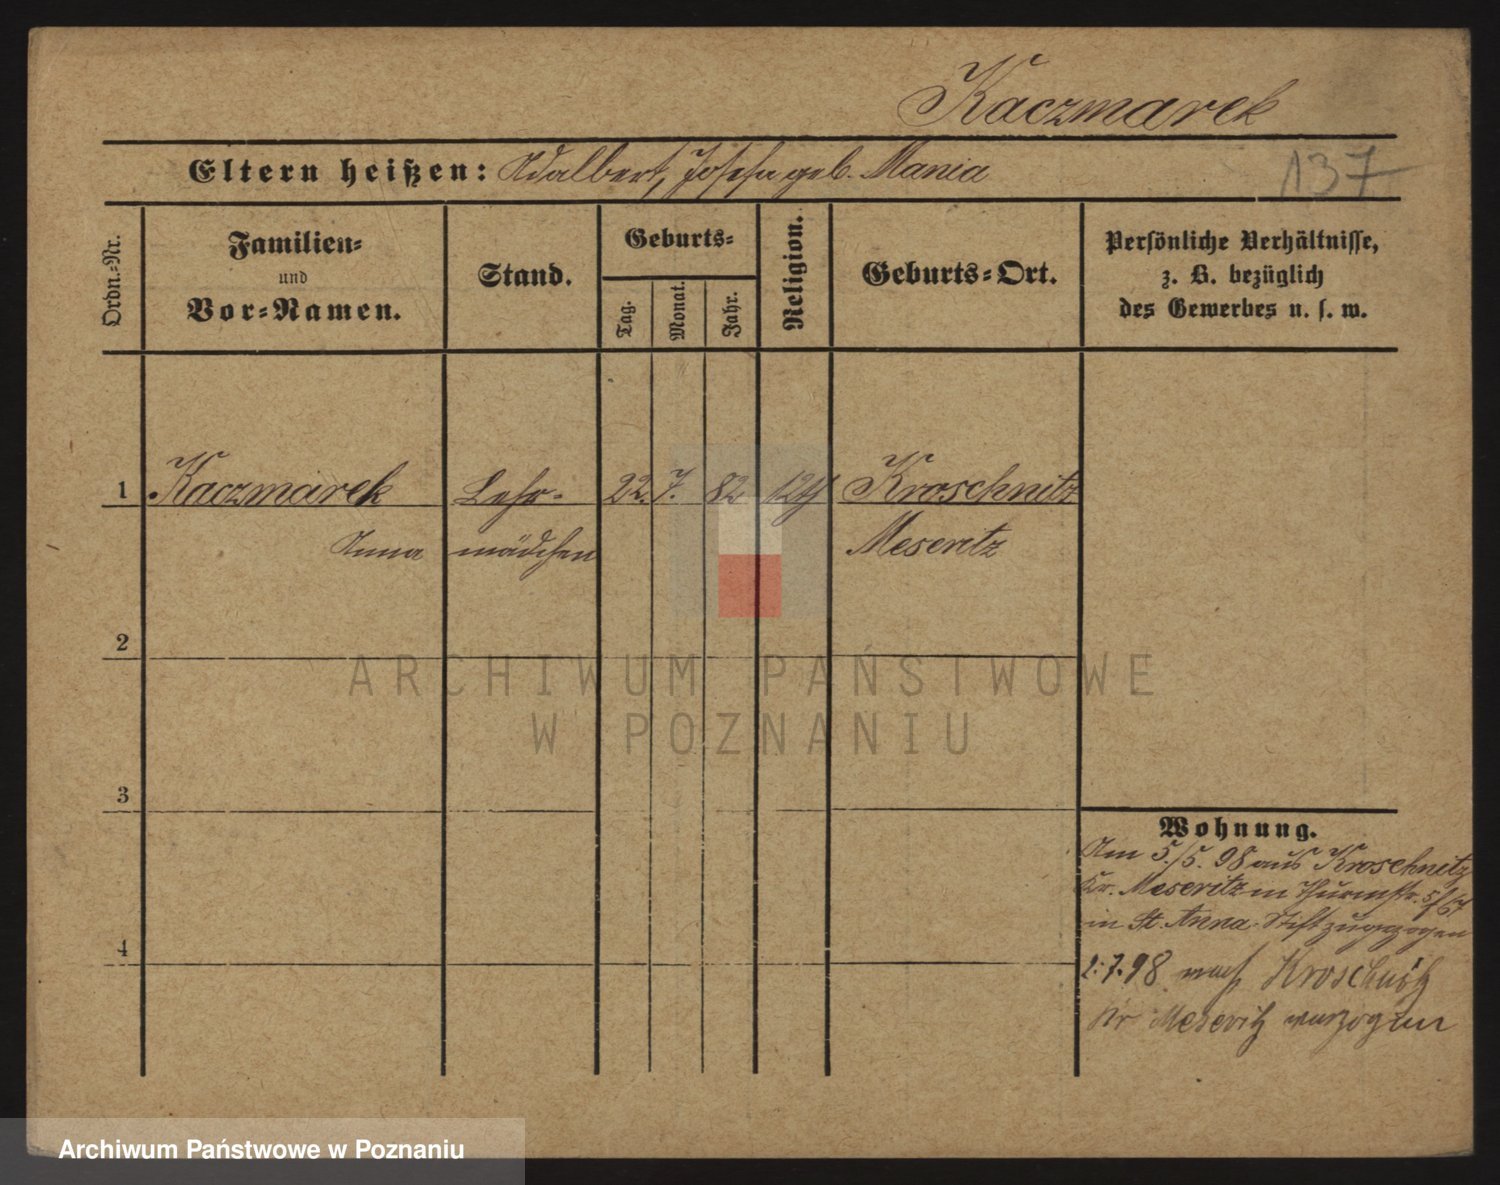 Kaczmarek
Eltern heißen: Adalbert, Josefa geb. Mania
137
Ordn.-Nr.
Familien-
und
Vor-Namen.
Stand.
Geburts-
Tag.
Monat.
Jahr.
Religion.
Geburts-Ort.
Persönliche Verhältnisse,
z. B. bezüglich
des Gewerbes u. s. w.
1 Kaczmarek Lehr- 22. 7. 82 Kroschnitz
Anna mädchen Meseritz
2
3
4
Wohnung.
Am 5./5. 98 aus Kroschnitz
Kr. Meseritz in Thurmstr.
in St. Anna-Stift zugezogen
2.7.98 nach Kroschnitz
Kr Meseritz verzogen
ARCHIWUM PAŃSTWOWE
W POZNANIU
Archiwum Państwowe w Poznaniu